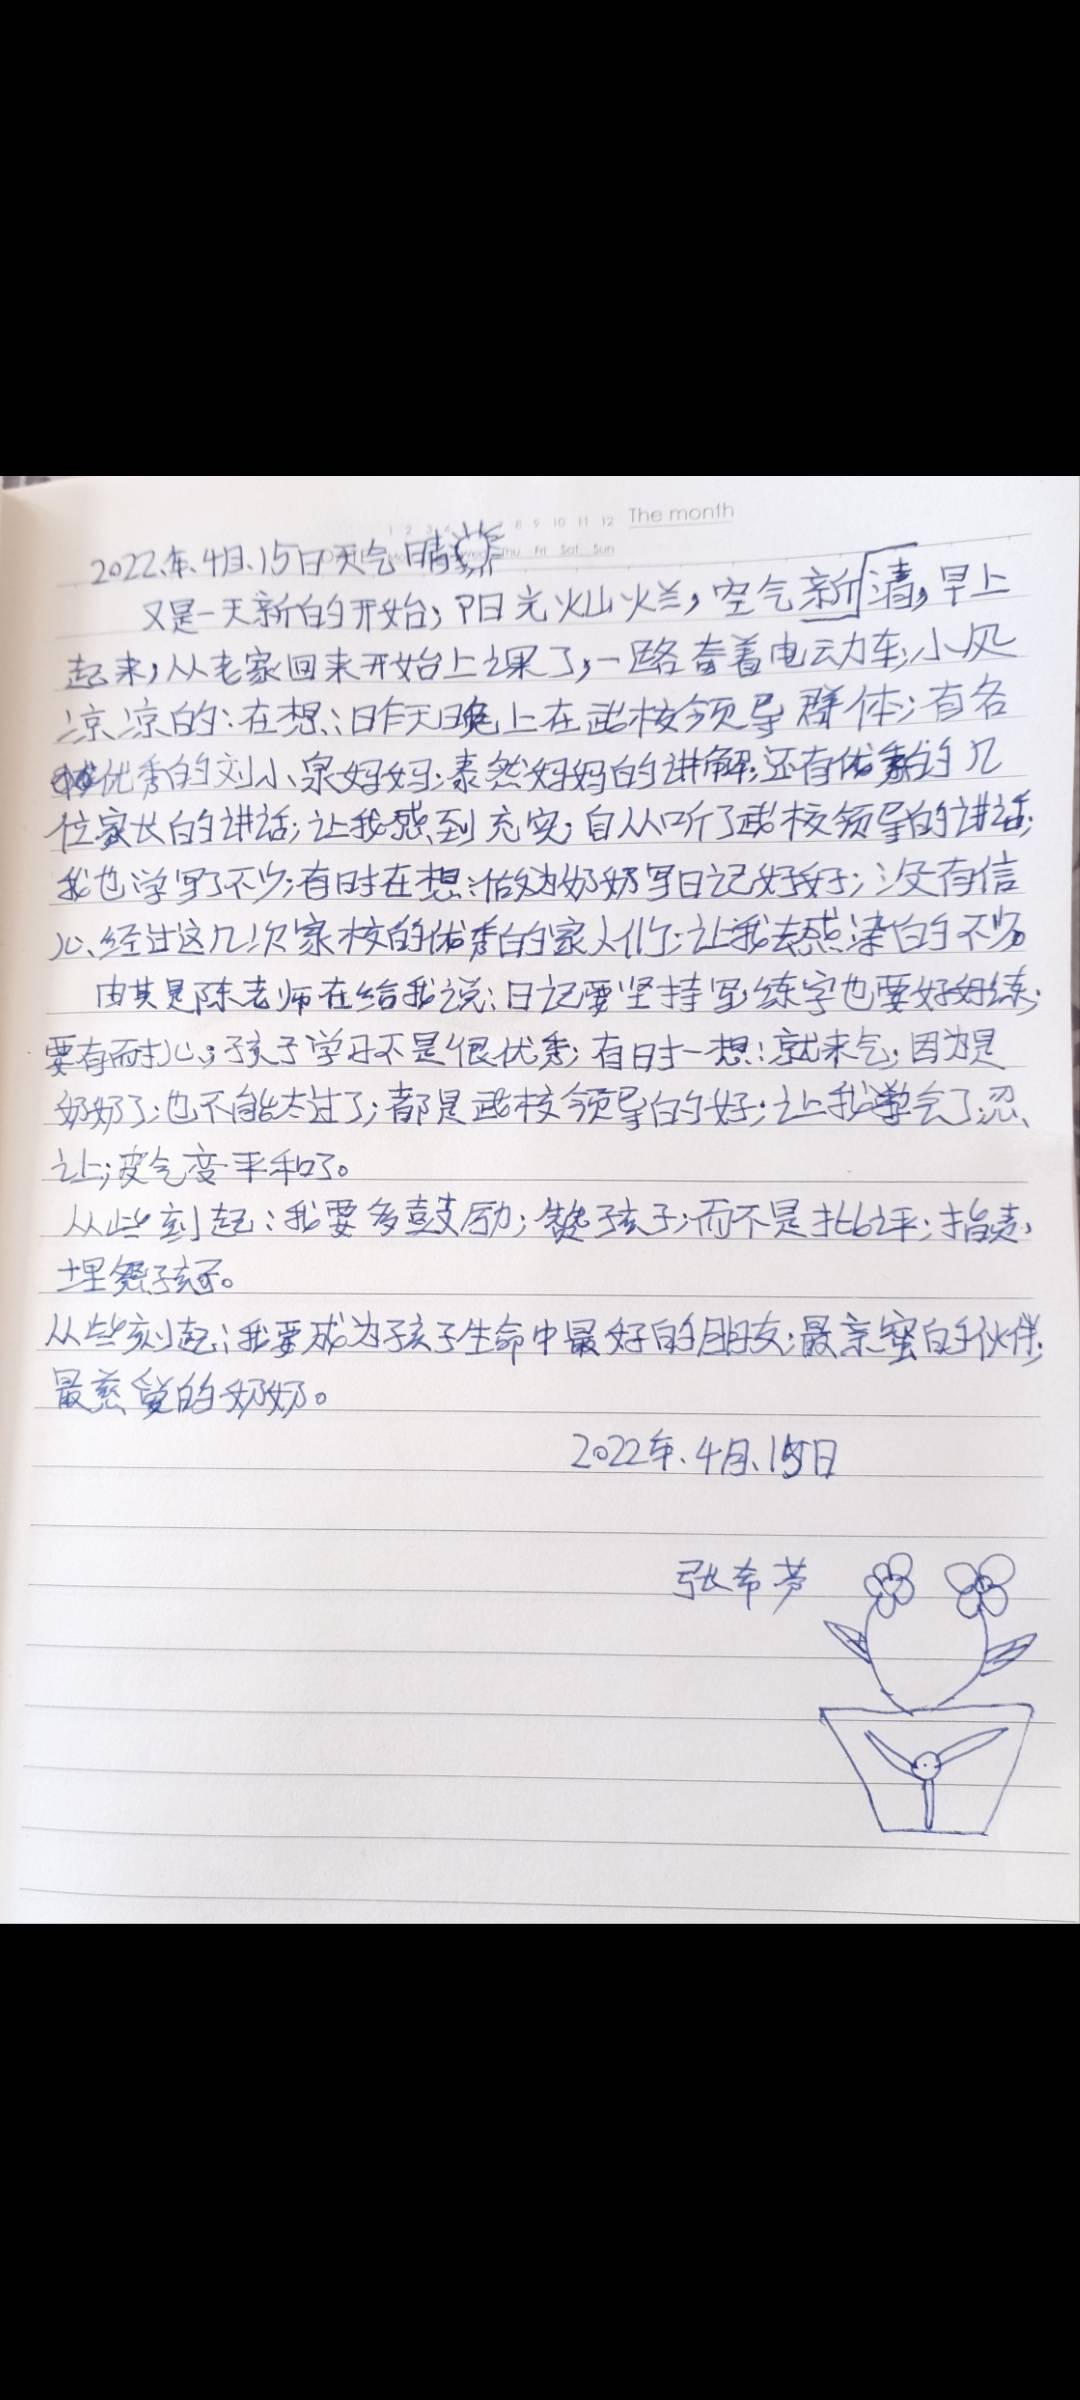 1 2 3 8 9 10 11 12 The month
Thu Fri Sat Sun
2022年.4月.15日天气晴
又是一天新的开始;阳光灿烂,空气新清,早上
起来,从老家回来开始上课了,一路奇着电动车,小风
凉凉的:在想:昨天晚上在武校领导群体;有各
优秀的刘小泉妈妈;泰然妈妈的讲解;还有优秀的几
位家长的讲话;让我感到充实;自从听了武校领导的讲话;
我也学写了不少;有时在想:做为奶奶写日记好好;没有信
心、经过这几次家校的优秀的家人们;让我去感染的不少。
由其是陈老师在给我说:日记要坚持写;练字也要好好练;
要有耐心;孩子学习不是很优秀;有时一想:就来气;因为是
奶奶了;也不能太过了;都是武校领导的好;让我学会了忍、
让;皮气变平和了。
从些刻起:我要多鼓励;赞孩子;而不是批评;指责,
埋怨孩子。
从些刻起;我要成为孩子生命中最好的朋友;最亲蜜的伙伴;
最慈爱的奶奶。
2022年.4月.15日
张希芳